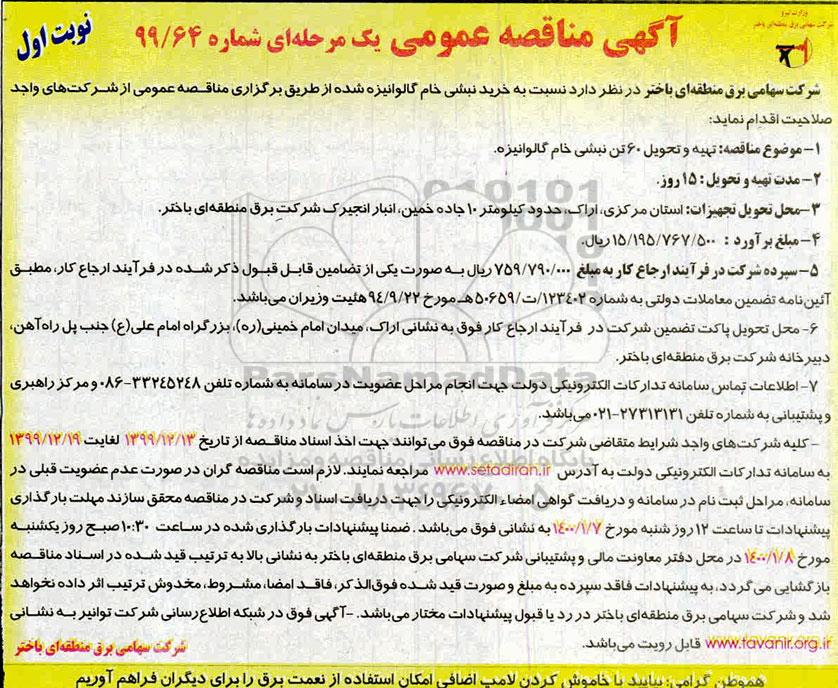 وزارت نیرو
شرکت سهامی برق منطقه‌ای باختر
نوبت اول
آگهی مناقصه عمومی یک مرحله‌ای شماره ۹۹/۶۴
شرکت سهامی برق منطقه‌ای باختر در نظر دارد نسبت به خرید نبشی خام گالوانیزه شده از طریق برگزاری مناقصه عمومی از شرکت‌های واجد
صلاحیت اقدام نماید:
۱- موضوع مناقصه: تهیه و تحویل ۶۰ تن نبشی خام گالوانیزه.
۲- مدت تهیه و تحویل: ۱۵ روز.
۳- محل تحویل تجهیزات: استان مرکزی، اراک، حدود کیلومتر ۱۰ جاده خمین، انبار انجیرک شرکت برق منطقه‌ای باختر.
۴- مبلغ برآورد : ۱۵/۱۹۵/۷۶۷/۵۰۰ ریال.
۵- سپرده شرکت در فرآیند ارجاع کار به مبلغ ۷۵۹/۷۹۰/۰۰۰ ریال به صورت یکی از تضامین قابل قبول ذکر شده در فرآیند ارجاع کار، مطابق
آئین نامه تضمین معاملات دولتی به شماره ۱۲۳۴۰۲/ت/۵۰۶۵۹هـ مورخ ۹۴/۹/۲۲ هئیت وزیران می‌باشد.
۶- محل تحویل پاکت تضمین شرکت در فرآیند ارجاع کار فوق به نشانی اراک، میدان امام خمینی(ره)، بزرگراه امام علی(ع) جنب پل راه‌آهن،
دبیرخانه شرکت برق منطقه‌ای باختر.
۷- اطلاعات تماس سامانه تدارکات الکترونیکی دولت جهت انجام مراحل عضویت در سامانه به شماره تلفن ۳۳۲۴۵۲۴۸-۰۸۶ و مرکز راهبری
و پشتیبانی به شماره تلفن ۲۷۳۱۳۱۳۱-۰۲۱ می‌باشد.
- کلیه شرکت‌های واجد شرایط متقاضی شرکت در مناقصه فوق می‌توانند جهت اخذ اسناد مناقصه از تاریخ ۱۳۹۹/۱۲/۱۳ لغایت ۱۳۹۹/۱۲/۱۹
به سامانه تدارکات الکترونیکی دولت به آدرس www.setadiran.ir مراجعه نمایند. لازم است مناقصه گران در صورت عدم عضویت قبلی در
سامانه، مراحل ثبت نام در سامانه و دریافت گواهی امضاء الکترونیکی را جهت دریافت اسناد و شرکت در مناقصه محقق سازند مهلت بارگذاری
پیشنهادات تا ساعت ۱۲ روز شنبه مورخ ۱۴۰۰/۱/۷ به نشانی فوق می‌باشد . ضمنا پیشنهادات بارگذاری شده در ساعت ۱۰:۳۰ صبح روز یکشنبه
مورخ ۱۴۰۰/۱/۸ در محل دفتر معاونت مالی و پشتیبانی شرکت سهامی برق منطقه‌ای باختر به نشانی بالا به ترتیب قید شده در اسناد مناقصه
بازگشایی می‌گردد، به پیشنهادات فاقد سپرده به مبلغ و صورت قید شده فوق‌الذکر، فاقد امضا، مشروط، مخدوش ترتیب اثر داده نخواهد
شد و شرکت سهامی برق منطقه‌ای باختر در رد یا قبول پیشنهادات مختار می‌باشد. -آگهی فوق در شبکه اطلاع‌رسانی شرکت توانیر به نشانی
www.tavanir.org.ir قابل رویت می‌باشد.
شرکت سهامی برق منطقه‌ای باختر
هموطن گرامی: بیایید با خاموش کردن لامپ اضافی امکان استفاده از نعمت برق را برای دیگران فراهم آوریم
ParsNamadData
پایگاه اطلاع رسانی مناقصه و مزایده